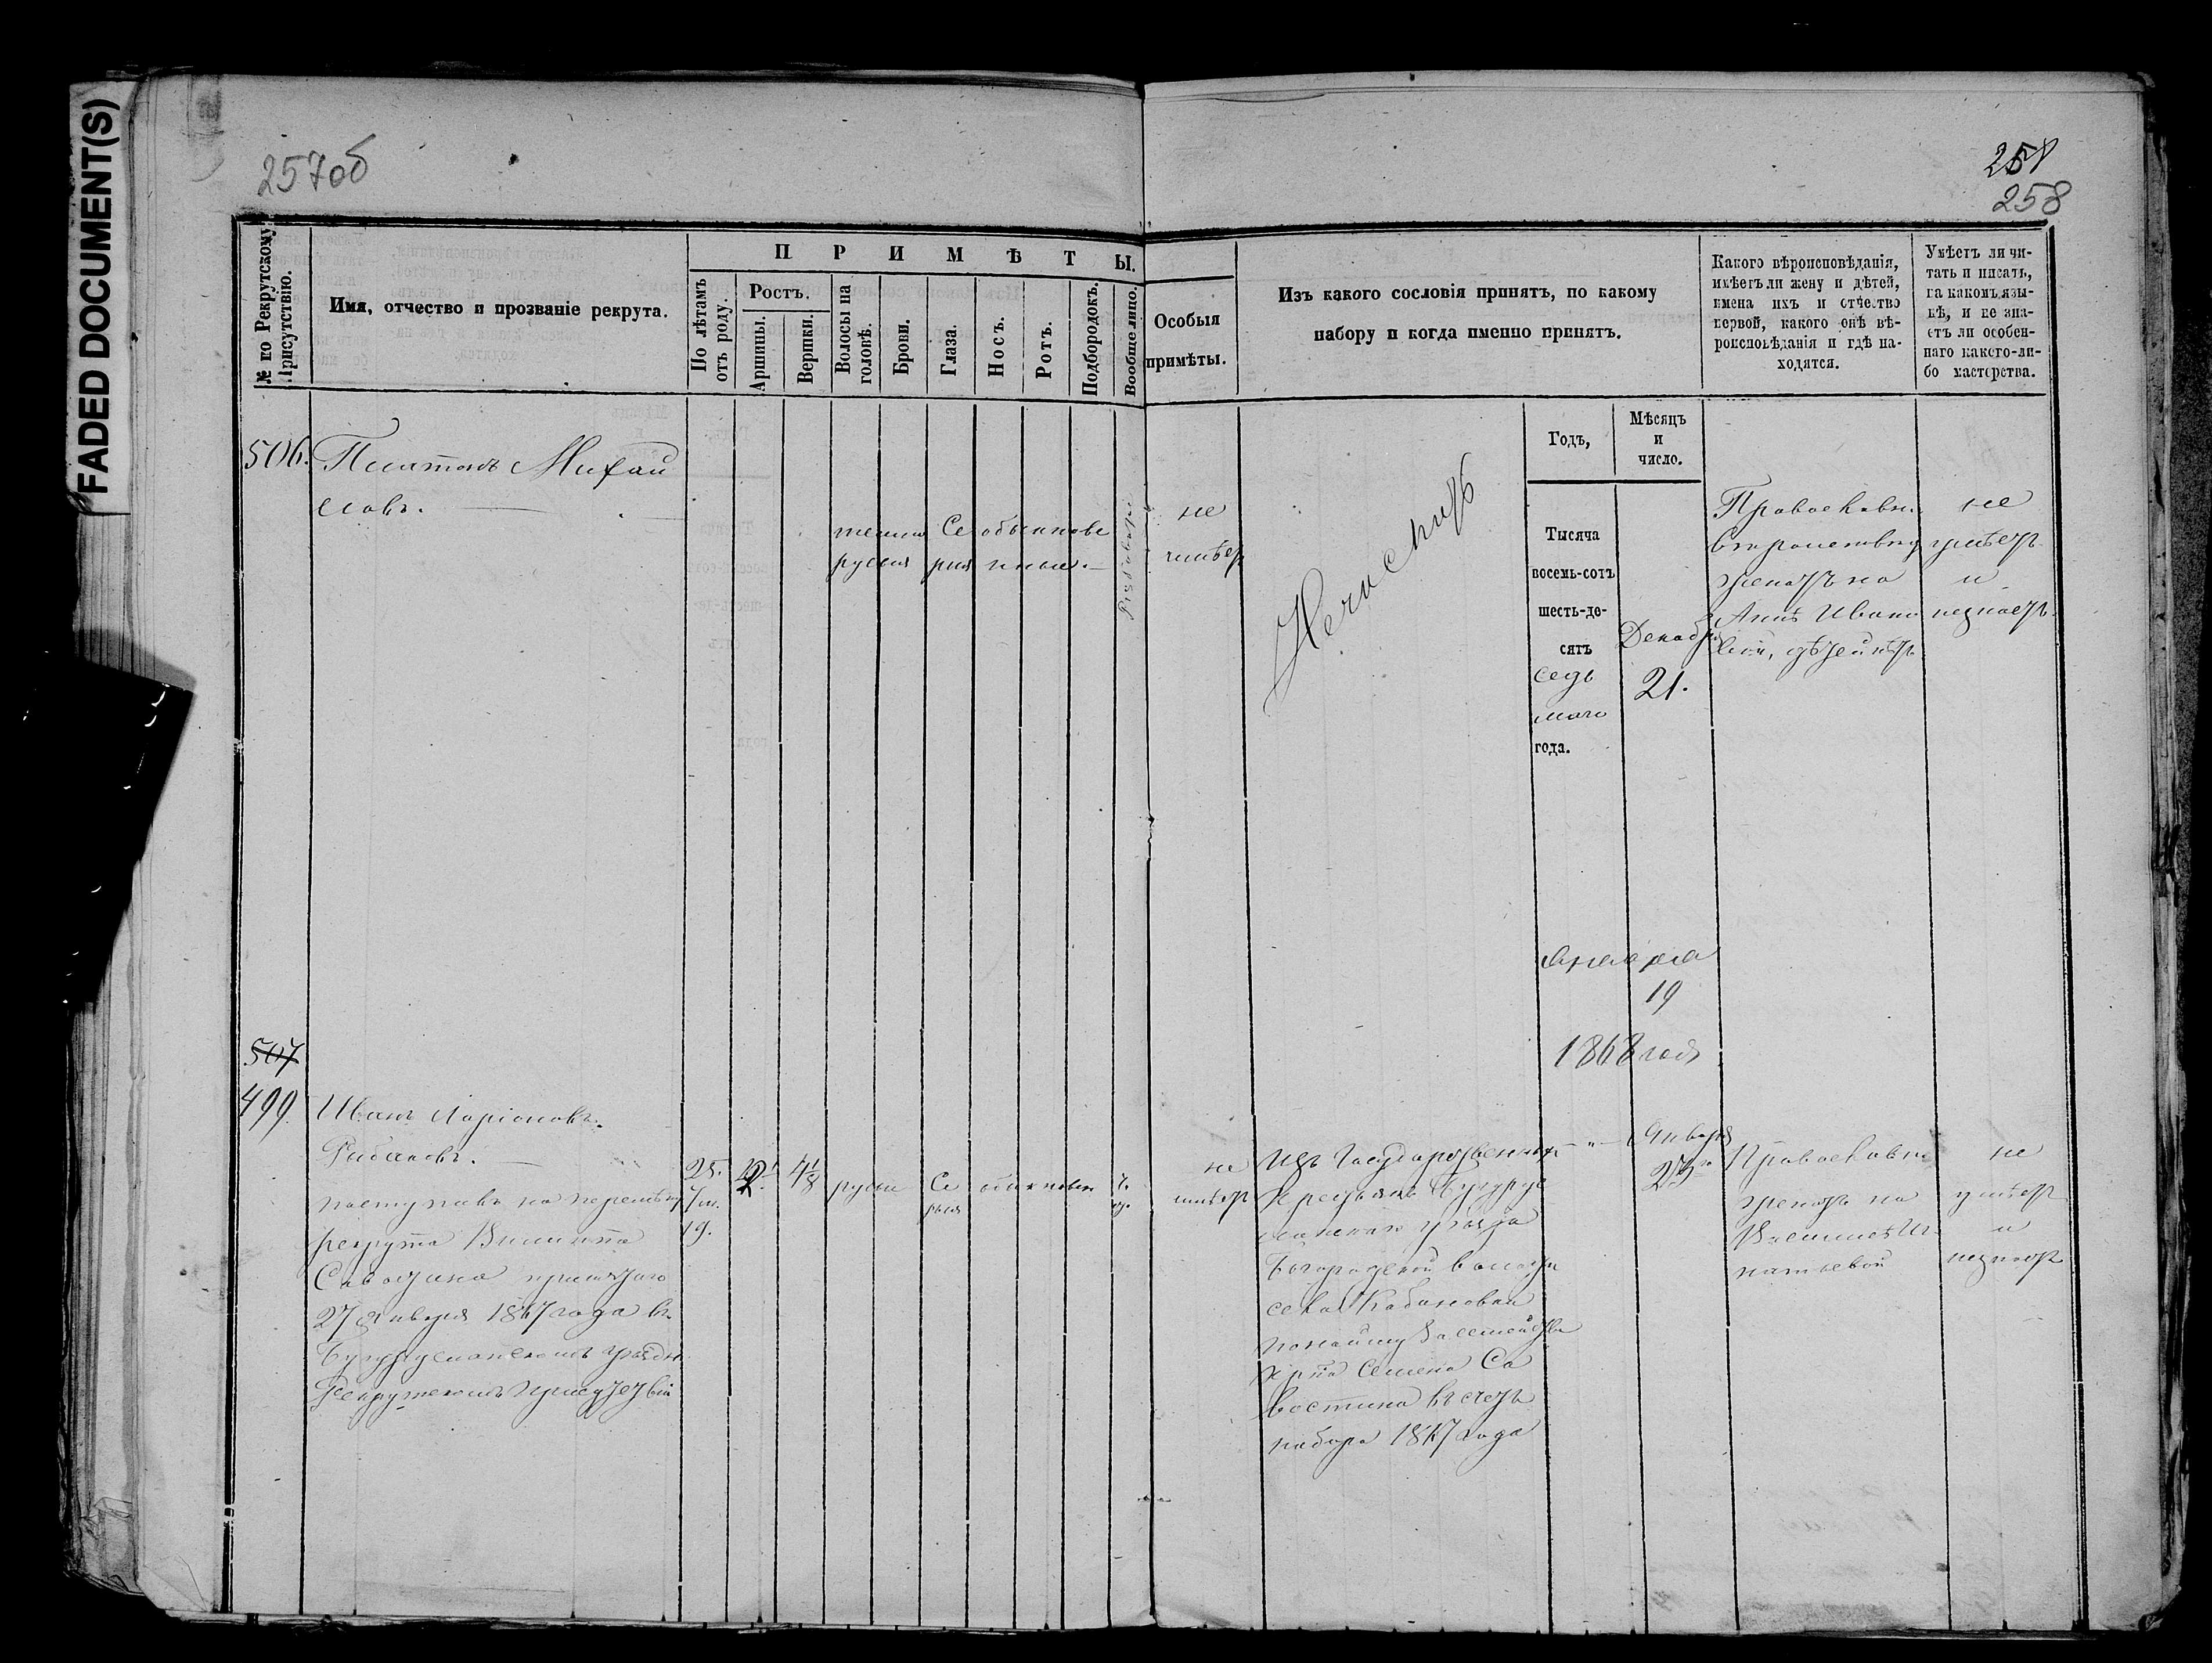 FADED DOCUMENT(S)
257об
258
№ по Рекрутскому Присутствію.
Имя, отчество и прозваніе рекрута.
ПРИМѢТЫ.
По лѣтамъ отъ роду.
Ростъ.
Аршины.
Вершки.
Волосы на головѣ.
Брови.
Глаза.
Носъ.
Ротъ.
Подбородокъ.
Вообще лицо.
Особыя
примѣты.
Изъ какого сословія принятъ, по какому
набору и когда именно принятъ.
Какого вѣроисповѣданія,
имѣетъ ли жену и дѣтей,
имена ихъ и отчество
первой, какого онѣ вѣ-
роисповѣданія и гдѣ на-
ходятся.
Умѣетъ ли чи-
тать и писать,
на какомъ язы-
кѣ, и не зна-
етъ ли особен-
наго какого-ли-
бо мастерства.
Годъ,
Мѣсяцъ
и
число.
506.
Платонъ Михай
ловъ.
темно Се обыкнове
русыя рыя нные.
не
имѣетъ
Тысяча
восемь-сотъ
шесть-де-
сятъ
седь
маго
года.
Декабря
21.
Православн.
женатъ на
Аннѣ Ивано
вой, дѣтей нѣтъ
не
умѣетъ
и
незнаетъ.
Января
19
1868 года
507
499.
Иванъ Ларіоновъ.
поступилъ на перемѣну
рекрута
принятаго
27 Января 1867 года въ
Бугурусланскомъ уѣздн.
Рекрутскомъ Присутствіи
25.
19.
2. 4 1/8 русые Се обыкновен
рыя
не
имѣетъ
Изъ Государственныхъ
крестьянъ Бугурус
ланскаго уѣзда
Богородской волости
села
по найму
Семена Са
востина въ счетъ
набора 1867 года
Января
23го
Православн.
женатъ на
не
умѣетъ
и
незнаетъ